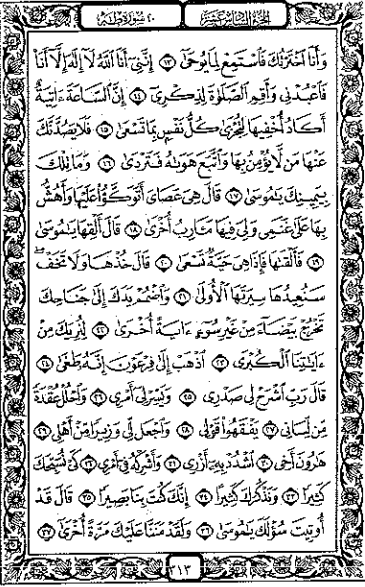 الجزء السادس عشر ٢٠ سورة طه
وَأَنَا ٱخْتَرْتُكَ فَٱسْتَمِعْ لِمَا يُوحَىٰٓ ١٣ إِنَّنِىٓ أَنَا ٱللَّهُ لَآ إِلَٰهَ إِلَّآ أَنَا۠
فَٱعْبُدْنِى وَأَقِمِ ٱلصَّلَوٰةَ لِذِكْرِىٓ ١٤ إِنَّ ٱلسَّاعَةَ ءَاتِيَةٌ
أَكَادُ أُخْفِيهَا لِتُجْزَىٰ كُلُّ نَفْسٍۭ بِمَا تَسْعَىٰ ١٥ فَلَا يَصُدَّنَّكَ
عَنْهَا مَن لَّا يُؤْمِنُ بِهَا وَٱتَّبَعَ هَوَىٰهُ فَتَرْدَىٰ ١٦ وَمَا تِلْكَ
بِيَمِينِكَ يَٰمُوسَىٰ ١٧ قَالَ هِىَ عَصَاىَ أَتَوَكَّؤُا۟ عَلَيْهَا وَأَهُشُّ
بِهَا عَلَىٰ غَنَمِى وَلِىَ فِيهَا مَـَٔارِبُ أُخْرَىٰ ١٨ قَالَ أَلْقِهَا يَٰمُوسَىٰ
١٩ فَأَلْقَىٰهَا فَإِذَا هِىَ حَيَّةٌ تَسْعَىٰ ٢٠ قَالَ خُذْهَا وَلَا تَخَفْ ۖ
سَنُعِيدُهَا سِيرَتَهَا ٱلْأُولَىٰ ٢١ وَٱضْمُمْ يَدَكَ إِلَىٰ جَنَاحِكَ
تَخْرُجْ بَيْضَآءَ مِنْ غَيْرِ سُوٓءٍ ءَايَةً أُخْرَىٰ ٢٢ لِنُرِيَكَ مِنْ
ءَايَٰتِنَا ٱلْكُبْرَى ٢٣ ٱذْهَبْ إِلَىٰ فِرْعَوْنَ إِنَّهُۥ طَغَىٰ ٢٤
قَالَ رَبِّ ٱشْرَحْ لِى صَدْرِى ٢٥ وَيَسِّرْ لِىٓ أَمْرِى ٢٦ وَٱحْلُلْ عُقْدَةً
مِّن لِّسَانِى ٢٧ يَفْقَهُوا۟ قَوْلِى ٢٨ وَٱجْعَل لِّى وَزِيرًا مِّنْ أَهْلِى ٢٩
هَٰرُونَ أَخِى ٣٠ ٱشْدُدْ بِهِۦٓ أَزْرِى ٣١ وَأَشْرِكْهُ فِىٓ أَمْرِى ٣٢ كَىْ نُسَبِّحَكَ
كَثِيرًا ٣٣ وَنَذْكُرَكَ كَثِيرًا ٣٤ إِنَّكَ كُنتَ بِنَا بَصِيرًا ٣٥ قَالَ قَدْ
أُوتِيتَ سُؤْلَكَ يَٰمُوسَىٰ ٣٦ وَلَقَدْ مَنَنَّا عَلَيْكَ مَرَّةً أُخْرَىٰٓ ٣٧
٣١٣